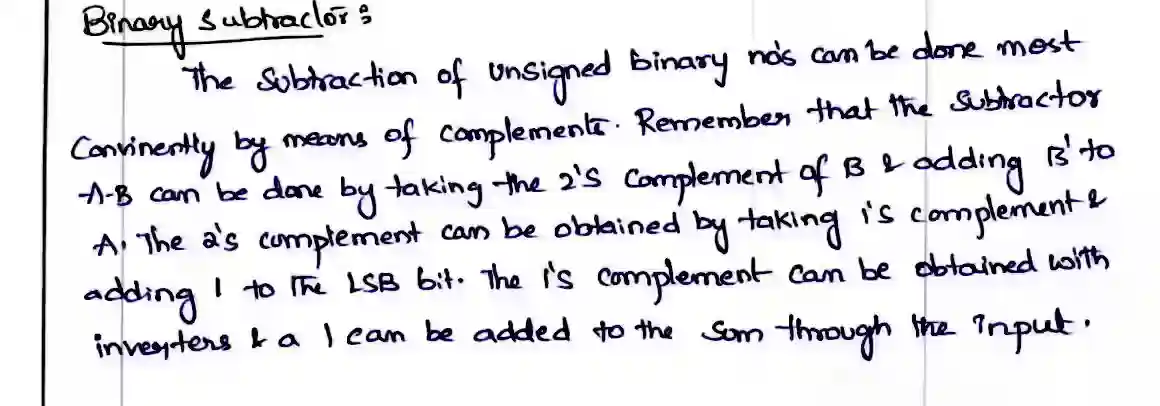 Binary subtractor :
The Subtraction of unsigned binary no's can be done most
Convinently by means of complements. Remember that the Subtractor
A-B can be done by taking the 2's Complement of B & adding B' to
A. The 2's complement can be obtained by taking 1's complement &
adding 1 to The LSB bit. The 1's complement can be obtained with
inverters & a 1 can be added to the sum through the input.